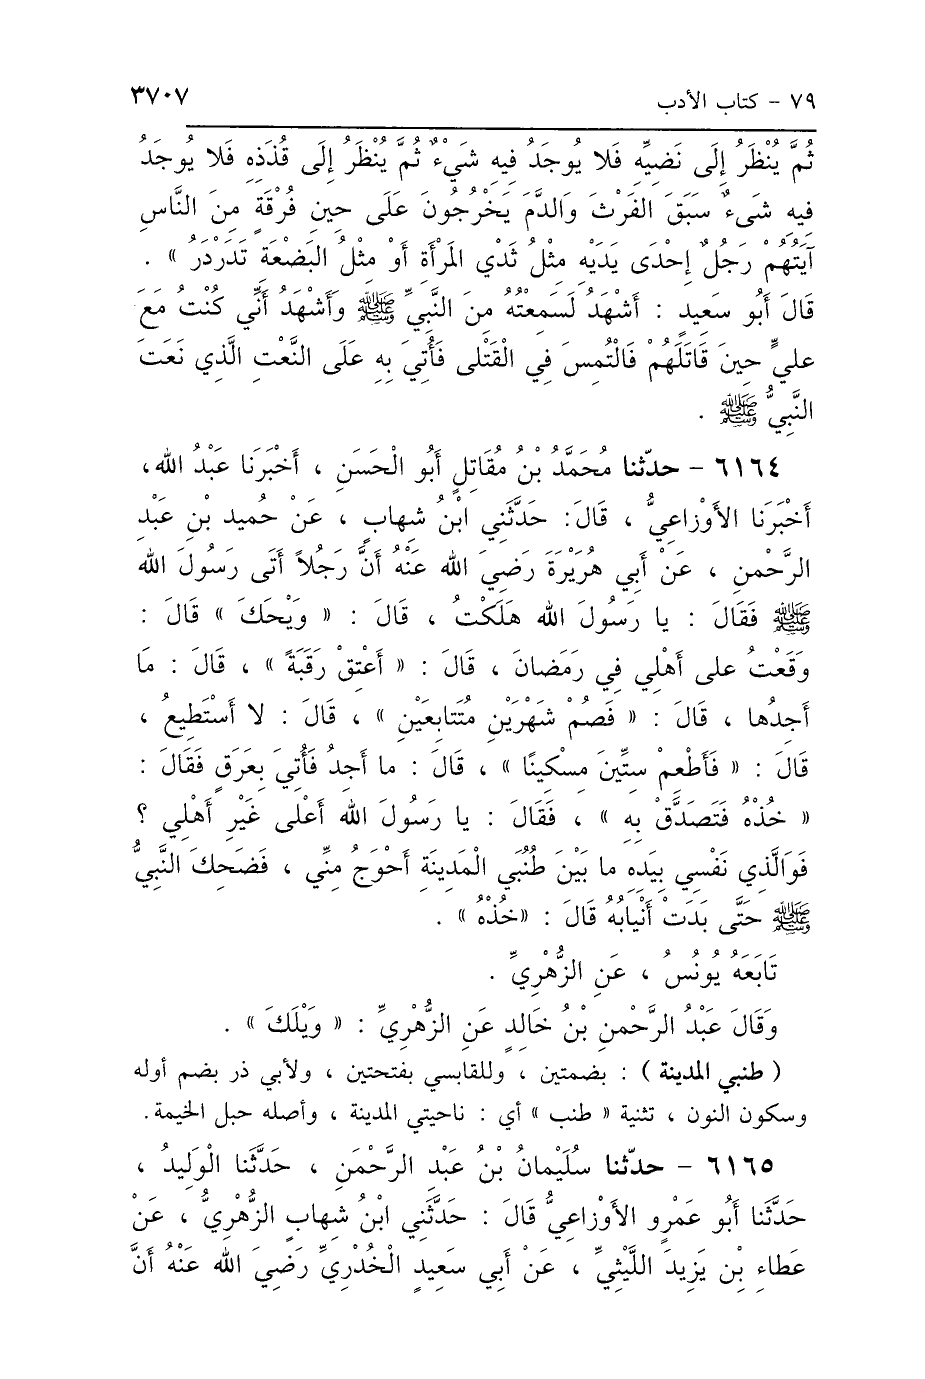 ٧٩ - كتاب الأدب ٣٧٠٧
ثُمَّ يُنْظَرُ إِلَى نَضيِّه فَلا يُوجَدُ فيه شَيْءٌ ثُمَّ يُنْظَرُ إِلَى قُذَذِه فَلا يُوجَدُ
فيه شَىءٌ سَبَقَ الفَرْثَ وَالدَّمَ يَخْرُجُونَ عَلَى حينِ فُرْقَةٍ منَ النَّاسِ
آيَتُهُمْ رَجُلٌ إحْدَى يَدَيْهِ مثْلُ ثَدْيِ المَرْأَةِ أَوْ مثْلُ البَضْعَةِ تَدَرْدَرُ » .
قَالَ أَبُو سَعيدٍ : أَشْهَدُ لَسَمعْتُهُ منَ النَّبيِّ ﷺ وَأَشْهَدُ أَنِّي كُنْتُ مَعَ
عليٍّ حينَ قَاتَلَهُمْ فَالْتُمسَ فِي الْقَتْلى فَأُتِيَ بِهِ عَلَى النَّعْتِ الَّذي نَعَتَ
النَّبيُّ ﷺ .
٦١٦٤ - حدّثنا مُحَمَّدُ بْنُ مُقَاتلٍ أَبُو الْحَسَنِ ، أَخْبَرَنَا عَبْدُ الله،
أَخْبَرَنَا الأَوْزاعيُّ ، قَالَ: حَدَّثَني ابْنُ شهابٍ ، عَنْ حُميد بْنِ عَبْدِ
الرَّحْمنِ ، عَنْ أَبي هُرَيْرَةَ رَضِيَ الله عَنْهُ أَنَّ رَجُلاً أَتَى رَسُولَ الله
ﷺ فَقَالَ : يا رَسُولَ الله هَلَكْتُ ، قَالَ : « وَيْحَكَ » قَالَ :
وَقَعْتُ على أَهْلي في رَمَضانَ ، قَالَ : « أَعْتِقْ رَقَبَةً » ، قَالَ : مَا
أَجدُها ، قَالَ : « فَصُمْ شَهْرَيْنِ مُتَتابعَيْنِ » ، قَالَ : لا أَسْتَطيعُ ،
قَالَ : « فَأَطْعمْ ستِّينَ مسْكينًا » ، قَالَ : ما أَجدُ فَأُتيَ بعَرَقٍ فَقَالَ :
« خُذْهُ فَتَصَدَّقْ بِه » ، فَقَالَ : يا رَسُولَ الله أَعْلَى غَيْرِ أَهْلي ؟
فَوَالَّذي نَفْسي بيَدِه ما بَيْنَ طُنُبَيِ الْمَدينَةِ أَحْوَجُ منِّي ، فَضَحكَ النَّبيُّ
ﷺ حَتَّى بَدَتْ أَنْيابُهُ قَالَ : «خُذْهُ » .
تَابَعَهُ يُونُسُ ، عَنِ الزُّهْريِّ .
وَقَالَ عَبْدُ الرَّحْمنِ بْنُ خَالدٍ عَنِ الزُّهْريِّ : « وَيْلَكَ » .
( طنبي المدينة ) : بضمتين ، وللقابسي بفتحتين ، ولأبي ذر بضم أوله
وسكون النون ، تثنية « طنب » أي : ناحيتي المدينة ، وأصله حبل الخيمة.
٦١٦٥ - حدّثنا سُلَيْمانُ بْنُ عَبْدِ الرَّحْمَنِ ، حَدَّثَنا الْوَليدُ ،
حَدَّثَنا أَبُو عَمْرٍو الأَوْزاعيُّ قَالَ : حَدَّثَني ابْنُ شهابٍ الزُّهْريُّ ، عَنْ
عَطاءِ بْنِ يَزيدَ اللَّيْثيِّ ، عَنْ أَبي سَعيدٍ الْخُدْريِّ رَضِيَ الله عَنْهُ أَنَّ